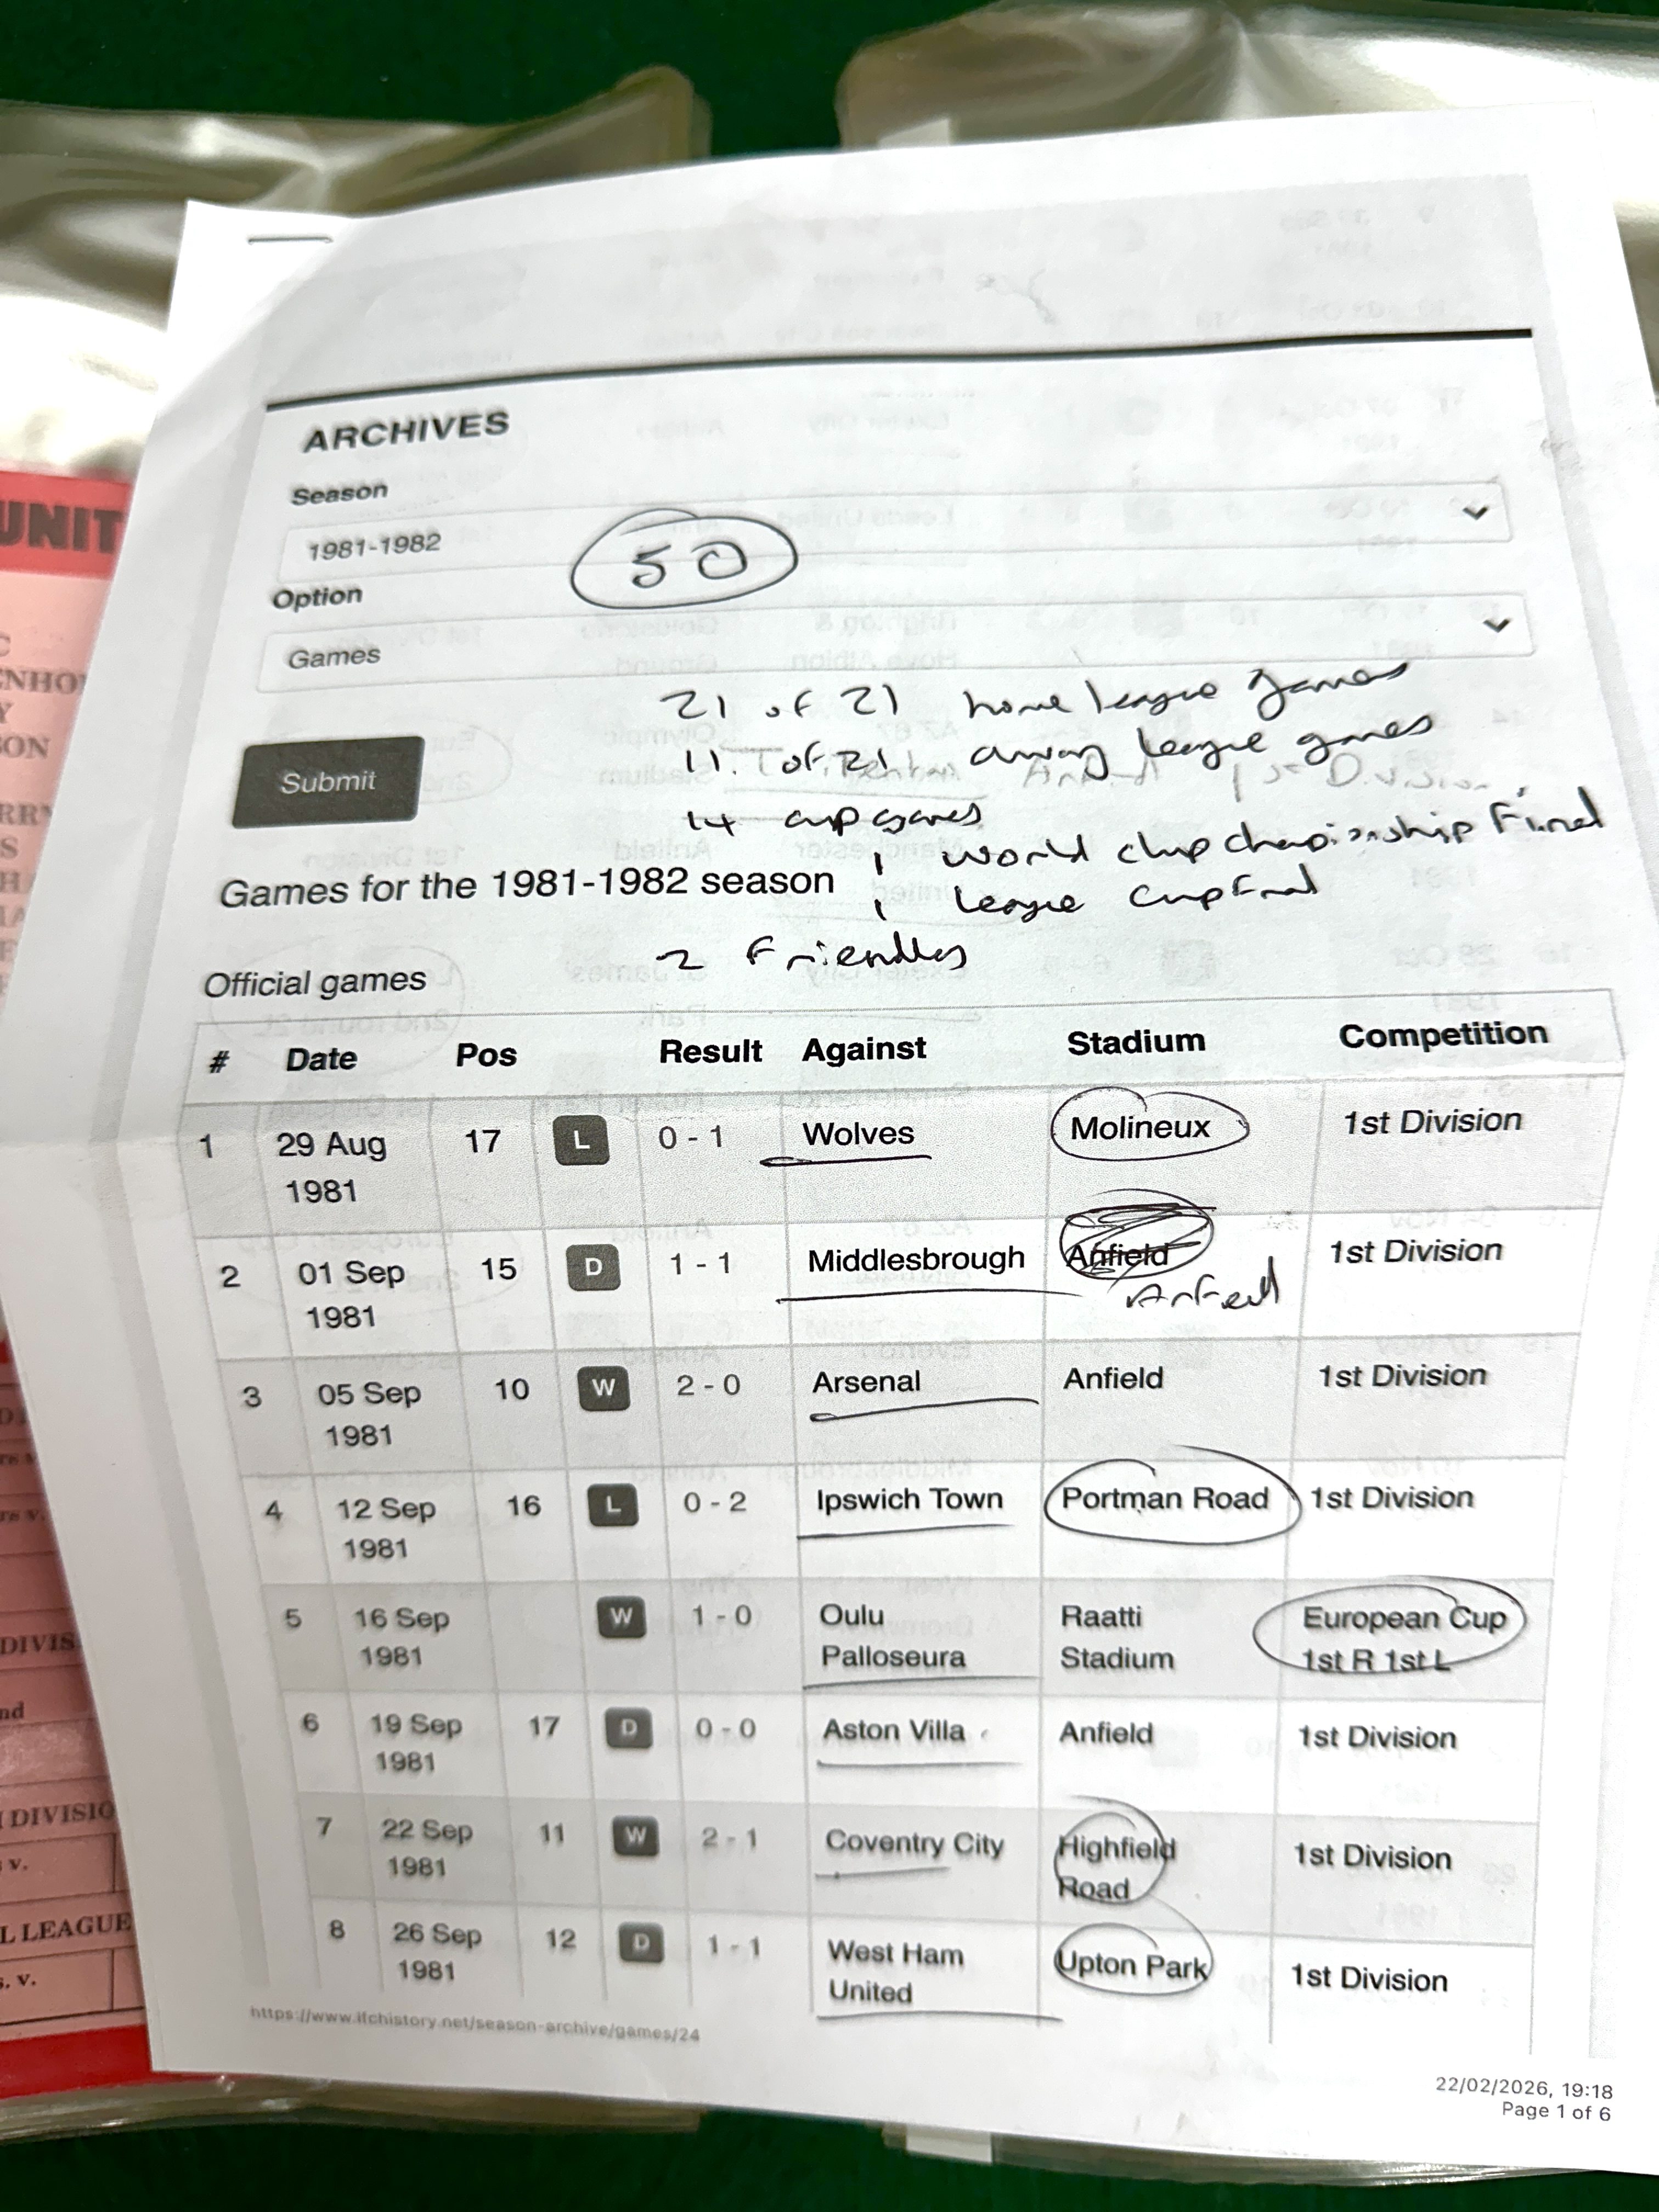 ARCHIVES
Season
1981-1982
50
Option
Games
21 of 21 home league games
11 of 21 away league games
Submit
14 cup games
1 world clup chapionship Final
Games for the 1981-1982 season
1 league cup Final
2 Friendlies
Official games
# Date Pos Result Against Stadium Competition
1 29 Aug 1981 17 L 0 - 1 Wolves Molineux 1st Division
2 01 Sep 1981 15 D 1 - 1 Middlesbrough Anfield 1st Division
Anfield
3 05 Sep 1981 10 W 2 - 0 Arsenal Anfield 1st Division
4 12 Sep 1981 16 L 0 - 2 Ipswich Town Portman Road 1st Division
5 16 Sep 1981 W 1 - 0 Oulu Palloseura Raatti Stadium European Cup 1st R 1st L
6 19 Sep 1981 17 D 0 - 0 Aston Villa Anfield 1st Division
7 22 Sep 1981 11 W 2 - 1 Coventry City Highfield Road 1st Division
8 26 Sep 1981 12 D 1 - 1 West Ham United Upton Park 1st Division
https://www.lfchistory.net/season-archive/games/24
22/02/2026, 19:18
Page 1 of 6
UNIT
DIVIS
DIVISIO
v.
L LEAGUE
s. v.